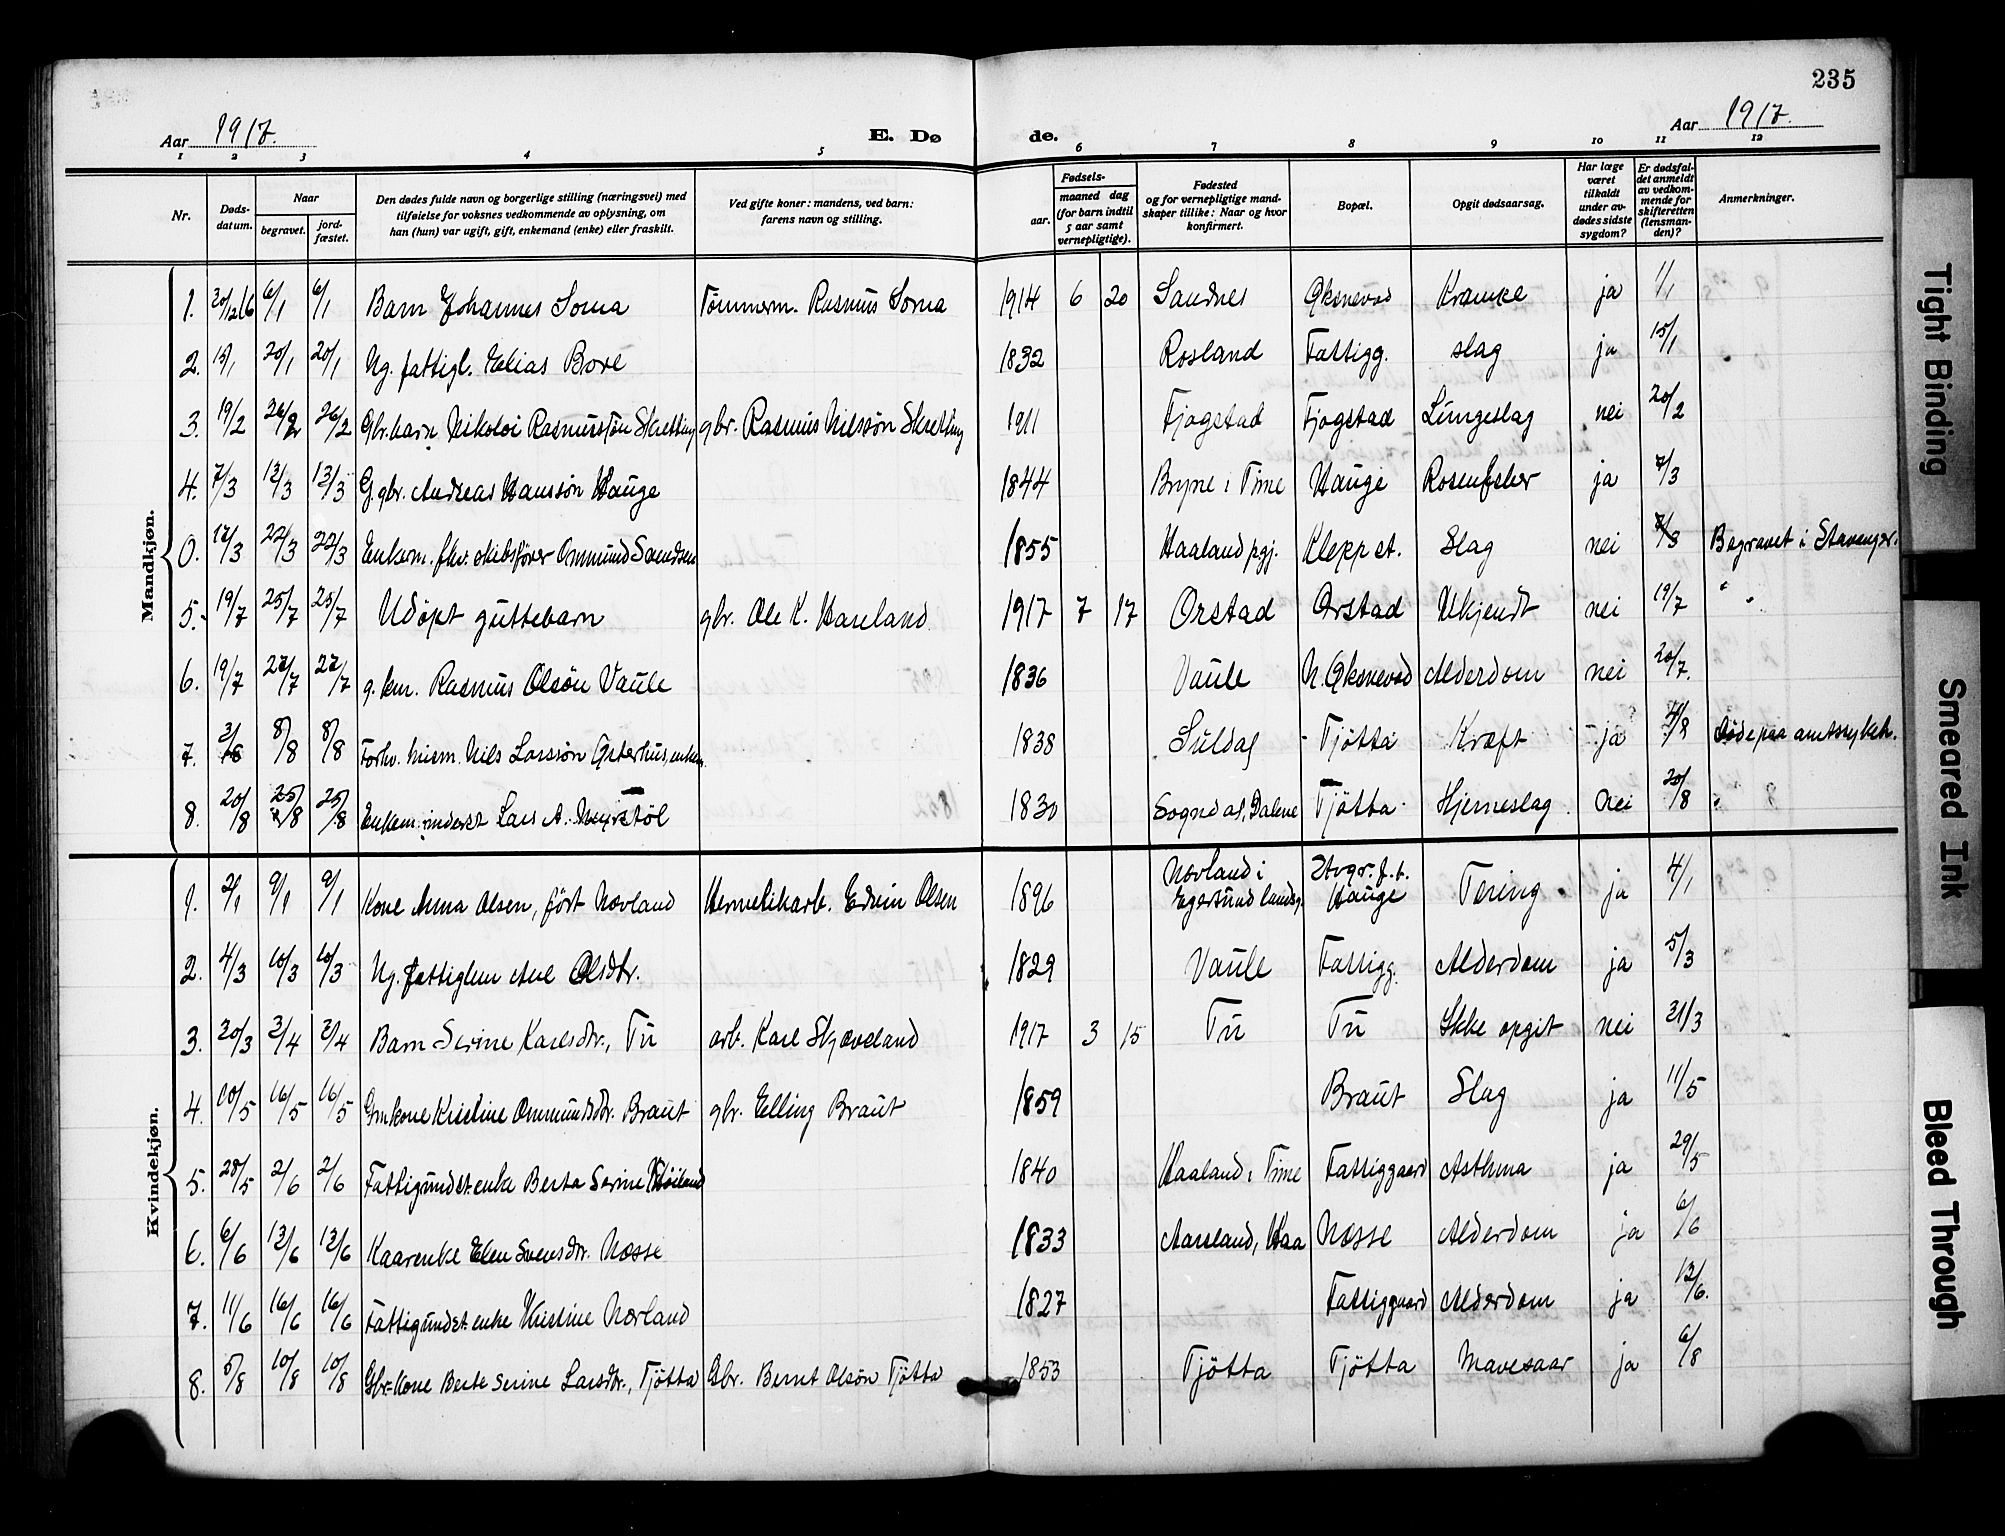 235
Aar 1917. E. Døde. Aar 1917.
1 2 3 4 5 6 7 8 9 10 11 12
Nr.
Døds-
datum.
Naar
begravet.
jord-
fæstet.
Den dødes fulde navn og borgerlige stilling (næringsvei) med
tilføielse for voksnes vedkommende av oplysning, om
han (hun) var ugift, gift, enkemand (enke) eller fraskilt.
Ved gifte koner: mandens, ved barn:
farens navn og stilling.
Fødsels-
aar.
maaned dag
(for barn indtil
5 aar samt
vernepligtige).
Fødested
og for vernepligtige mand-
skaper tillike: Naar og hvor
konfirmert.
Bopæl.
Opgit dødsaarsag.
Har læge
været
tilkaldt
under av-
dødes sidste
sygdom?
Er dødsfal-
det anmeldt
av vedkom-
mende for
skifteretten
(lensman-
den)?
Anmerkninger.
Mandkjøn.
1. 30/12 16 6/1 6/1 Barn Johannes Soma Tømmerm. Rasmus Soma 1914 6 20 Sandnes Øksnevad Krampe ja 1/1
2. 15/1 20/1 20/1 Ug. fattigl. Elias Bore 1832 Rosland Fattigg. slag ja 15/1
3. 19/2 26/2 26/2 Gbr. barn Nikolai Rasmussøn Skretting gbr. Rasmus Nilssøn Skretting 1911 Fjogstad Fjogstad Lungeslag nei 20/2
4. 7/3 13/3 13/3 G. gbr. Andreas Hanssøn Hauge 1844 Bryne i Time Hauge Rosenfeber ja 7/3
0. 17/3 22/3 22/3 Enkem. fhv. skibsfører Ommund Svendsen 1855 Haaland pgj. Klepp st. Slag nei Begravet i Stavanger.
5. 19/7 25/7 25/7 Udøpt guttebarn gbr. Ole K. Haneland 1917 7 17 Orstad Orstad Ukjendt nei 19/7 " "
6. 19/7 27/7 27/7 g. km. Rasmus Olsøn Vaule 1836 Vaule N. Øksnevad Alderdom nei 20/7.
7. 8/8 8/8 Forhv. Nils Larssøn enkem. 1838 Suldal Tjøtta Kræft ja Døde paa amtssykeh.
8. 20/8 25/8 25/8 Enkem. inderst Lars A. 1830 Sogndal, Dalene Tjøtta Hjerneslag nei 20/8
Kvindekjøn.
1. 2/1 9/1 9/1 Kone Anna Olsen, født Nævland Hermetikarb. Edvin Olsen 1896 Nævland i
Egersund landsg. Stvgr. f. t.
Hauge Tæring ja 4/1
2. 4/3 10/3 10/3 Ug. fattiglem Ane Olsdtr. 1829 Vaule Fattigg. Alderdom ja 5/3
3. 30/3 3/4 3/4 Barn Serine Karlsdtr., Tu arb. Karl Skjæveland 1917 3 15 Tu Tu Ikke opgit nei 31/3
4. 10/5 16/5 16/5 Gmkone Kristine Ommundsdtr. Braut gbr. Elling Braut 1859 Braut Slag ja 11/5
5. 28/5 2/6 2/6 Fattigundst. enke Berta Serine Høiland 1840 Haaland i Time Fattiggaard Asthma ja 29/5
6. 6/6 13/6 13/6 Kaarenke Elen Svensdtr. Næsse 1833 Aarsland, Haa Næsse Alderdom ja 6/6
7. 11/6 16/6 16/6 Fattigundst. enke Kristine Nærland 1827 Fattiggaard Alderdom ja 12/6.
8. 5/8 10/8 10/8 Gbr.kone Berte Serine Larsdtr., Tjøtta Gbr. Bernt Olsøn Tjøtta 1853 Tjøtta Tjøtta Mavesaar ja 6/8
Tight Binding
Smeared Ink
Bleed Through